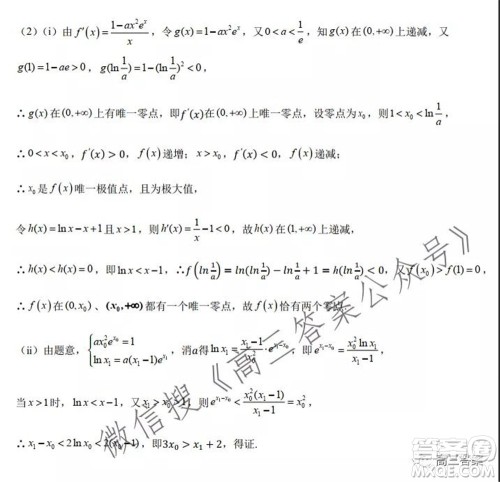 （2）（i）由 f'(x)=(1-ax²eˣ)/x，令 g(x)=1-ax²eˣ，又 0<a<1/e，知 g(x) 在 (0,+∞) 上递减，又
g(1)=1-ae>0，g(ln 1/a)=1-(ln 1/a)²<0，
∴ g(x) 在 (0,+∞) 上有唯一零点，即 f'(x) 在 (0,+∞) 上唯一零点，设零点为 x₀，则 1<x₀<ln 1/a，
∴ 0<x<x₀，f'(x)>0，f(x) 递增；x>x₀，f'(x)<0，f(x) 递减；
∴ x₀ 是 f(x) 唯一极值点，且为极大值，
令 h(x)=ln x-x+1 且 x>1，则 h'(x)=1/x-1<0，故 h(x) 在 (1,+∞) 上递减，
∴ h(x)<h(x)=0，即 ln x<x-1，∴ f(ln 1/a)=ln(ln 1/a)-ln 1/a+1=h(ln 1/a)<0，又 f(x₀)>f(1)=0，
∴ f(x) 在 (0,x₀)、(x₀,+∞) 都有一个唯一零点，故 f(x) 恰有两个零点
（ii）由题意，{ax₀²e^(x₀)=1，ln x₁=a(x₁-1)e^(x₁)，消 a 得 ln x₁=(x₁-1)/x₀²·e^(x₁-x₀)，即 e^(x₁-x₀)=x₀² ln x₁/(x₁-1)，
当 x>1 时，ln x<x-1，又 x₁>x₀>1，则 e^(x₁-x₀)<x₀²(x₁-1)/(x₁-1)=x₀²，
∴ x₁-x₀<2ln x₀<2(x₀-1)，即 3x₀>x₁+2，得证.
微信搜《高三答案公众号》
高三答案